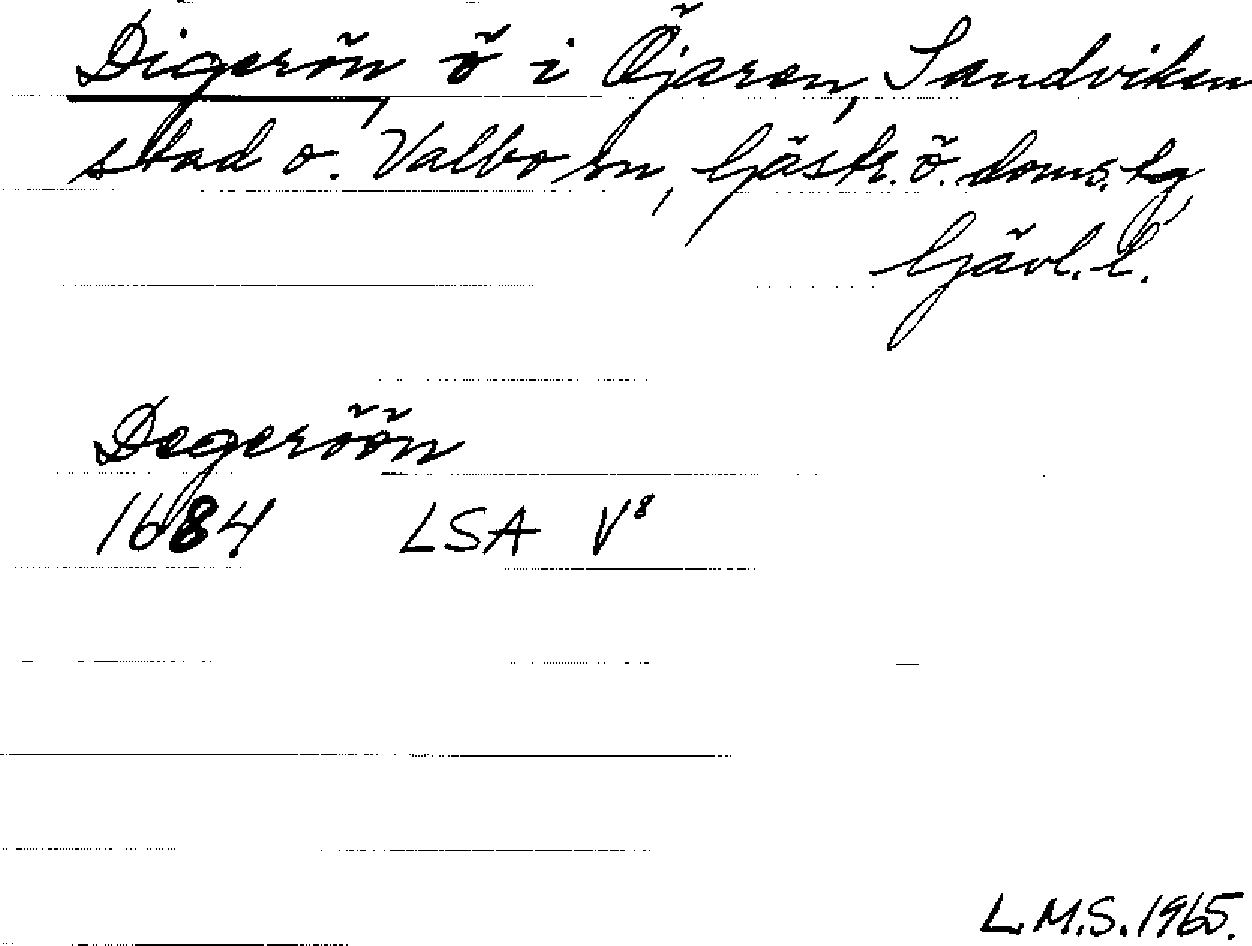 Digerön, ö i Öjaren, Sandviken
stad o. Valbo sn, Gästr. ö. doms. tg,
Gävl. l.
Degeröön
1684 LSA V8
L.M.S. 1965.